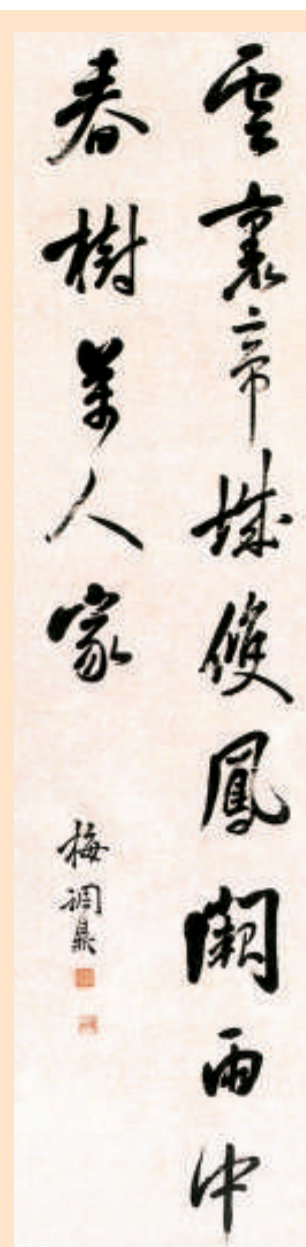 雲裏帝城雙鳳闕雨中
春樹萬人家
梅調鼎